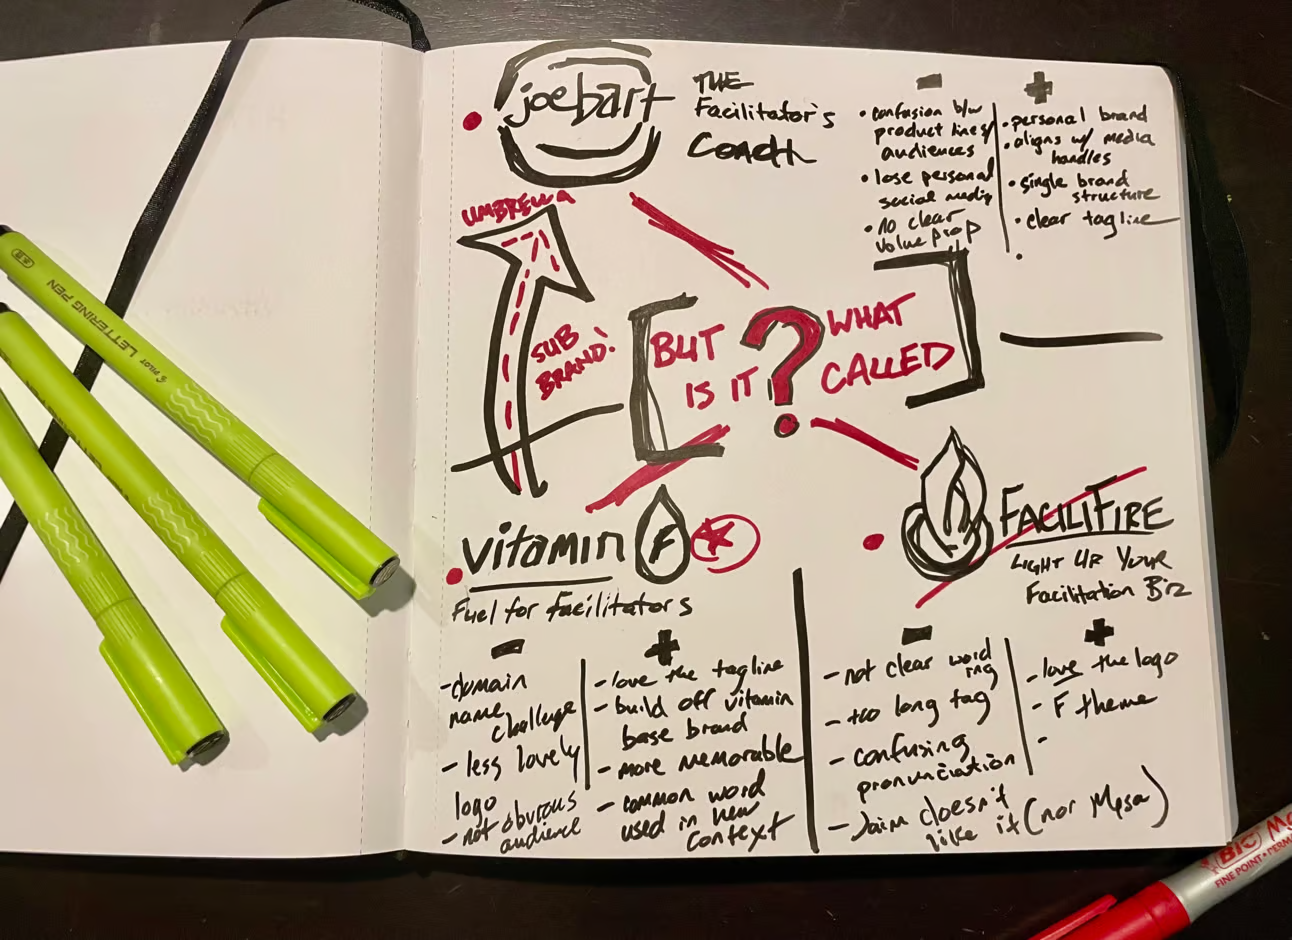 joebart
THE
Facilitator's
Coach
-
• confusion b/w
product lines/
audiences
• lose personal
social media
• no clear
value prop
+
• personal brand
• aligns w/ media
handles
• single brand
structure
• clear tagline
UMBRELLA
SUB
BRAND!
BUT
IS IT
?
WHAT
CALLED
vitamin F
Fuel for facilitators
-
- domain
name
challenge
- less lovely
logo
- not obvious
audience
+
- love the tagline
- build off vitamin
base brand
- more memorable
- common word
used in new
context
FACILIFIRE
LIGHT UP YOUR
Facilitation Biz
-
- not clear word
ing
- too long tag
- confusing
pronunciation
doesn't
like it (nor Mesa)
+
- love the logo
- F theme
-
PILOT LETTERING PEN
BIC
FINE POINT